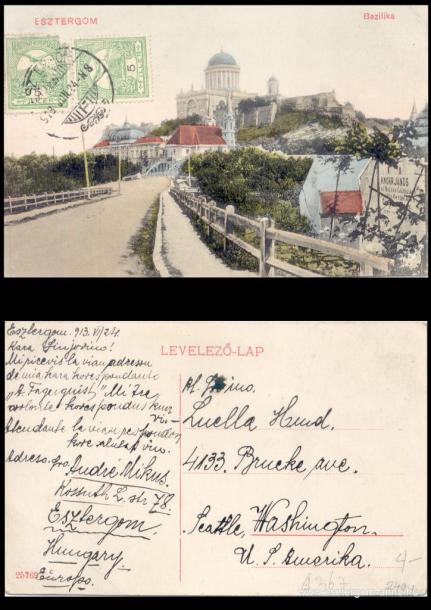 ESZTERGOM
Bazilika
5
ANGHAJÁNOS
LEVELEZŐ-LAP
Esztergom. 913. VI/24.
Kara Sinjorino!
Mi ricevis la vian adreson
de mia kara korespondanto
"A. Fagerquist". Mi tre
korespondus kun
vi.-
Atendante la vian respondon
kore salutat vin.
Adreso:
André Mikus.
Kossuth L. str 78.
Esztergom.
Hungary
Europo.
25762
Luella Hund.
4133. Brucke ave.
Seattle, Washington.
U. S. Amerika.
4-